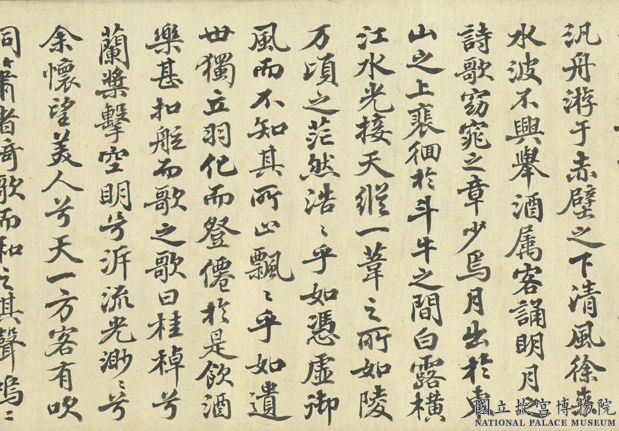 汎舟游于赤壁之下清風徐来
水波不興舉酒属客誦明月之
詩歌窈窕之章少焉月出於東
山之上裵徊於斗牛之間白露横
江水光接天縱一葦之所如陵
万頃之茫然浩〻乎如憑虚御
風而不知其所止飄〻乎如遺
世獨立羽化而登僊於是飲酒
樂甚扣舷而歌之歌曰桂棹兮
蘭槳擊空明兮泝流光渺〻兮
余懷望美人兮天一方客有吹
洞簫者倚歌而和之其聲嗚〻
國立故宮博物院
NATIONAL PALACE MUSEUM